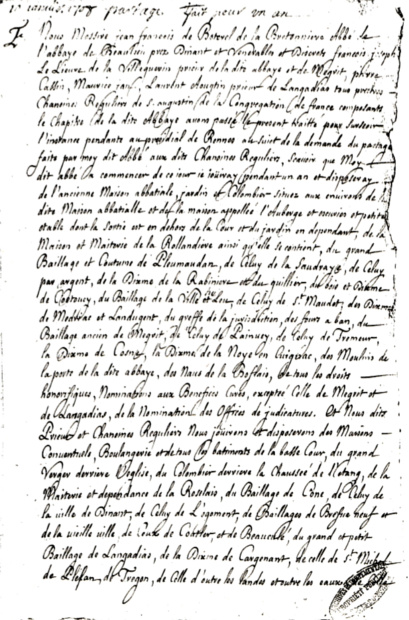 1708 partage fait pour un an
Nous Messire jean francois de Boterel de la Bretonniere Abbé de
l'abbaye de Beaulieu prez Dinant et Venerable et Discrets francois joseph
Le Lieure de la Villeguerin prieur de la dite abbaye et de Megrit, pierre
Cassin, Maurice jan, Laurent Aoustin prieur de Langadias tous prestres
Chanoines Reguliers de s. augustin de la Congregation de france composants
le Chapitre de la dite Abbaye avons passé le present traitté pour
l'instance pendante au presidial de Rennes au sujet de la demande du partage
faite par moy dit Abbé aux dits Chanoines Reguliers, scavoir que Moy
dit abbé a commencer de ce jour je jouiray pendant un an et disposeray
de l'ancienne Maison abbatiale, jardin et Colombier situez aux environs de la
dite Maison abbatialle et de la maison appellée l'auberge et ecuries et petite
etable dont la sortie est en dehors de la Cour et du jardin en dependant, de la
Maison et Maitairie de la Rollandiere ainsi qu'elle se contient, du grand
Bailliage et Coutume de Plumaudan, de Celuy de la Saudraye, de Celuy
par argent, de la Dixme de la Rabiniere et du guillier, du bois et Dixme
de, du Bailliage de la Ville es Leu, de Celuy de St. Maudet, des Dixmes
de et Landugent, du greffe de la jurisdiction, des fours a ban, du
Bailliage ancien de Megrit, de Celuy de, de Celuy de Tremeur
la Dixme de, la Dixme de la Noye en Guigerlac, des Moulins de
la porte de la dite abbaye, des Naux de la, de tous les droits
honorifiques, Nominations aux Benefices Cures, exceptés Celle de Megrit et
de Langadias, de la Nomination des Offices de judicatures. Et Nous dits
Prieur et Chanoines Reguliers Nous jouirons et disposerons des Maisons
Conventuelle, Boulangerie et de tous les batiments de la basse Cour, du grand
Verger derriere l'eglise, du Colombier derriere la Chaussée de l'etang, de la
Maitairie et dependance de la Roselais, du Bailliage de Cône, de Celuy de
la ville de Dinant, de Celuy de Ligement, de Bailliages de Brefie neuf et
de la vieille ville, de Ceux de, et de Beaucallé, du grand et petit
Bailliage de Langadias, de la Dixme de Cargenant, de celle de St. Michel
de Plesan, de Tregon, de Celle d'outre les landes et outre les eaux, de celle